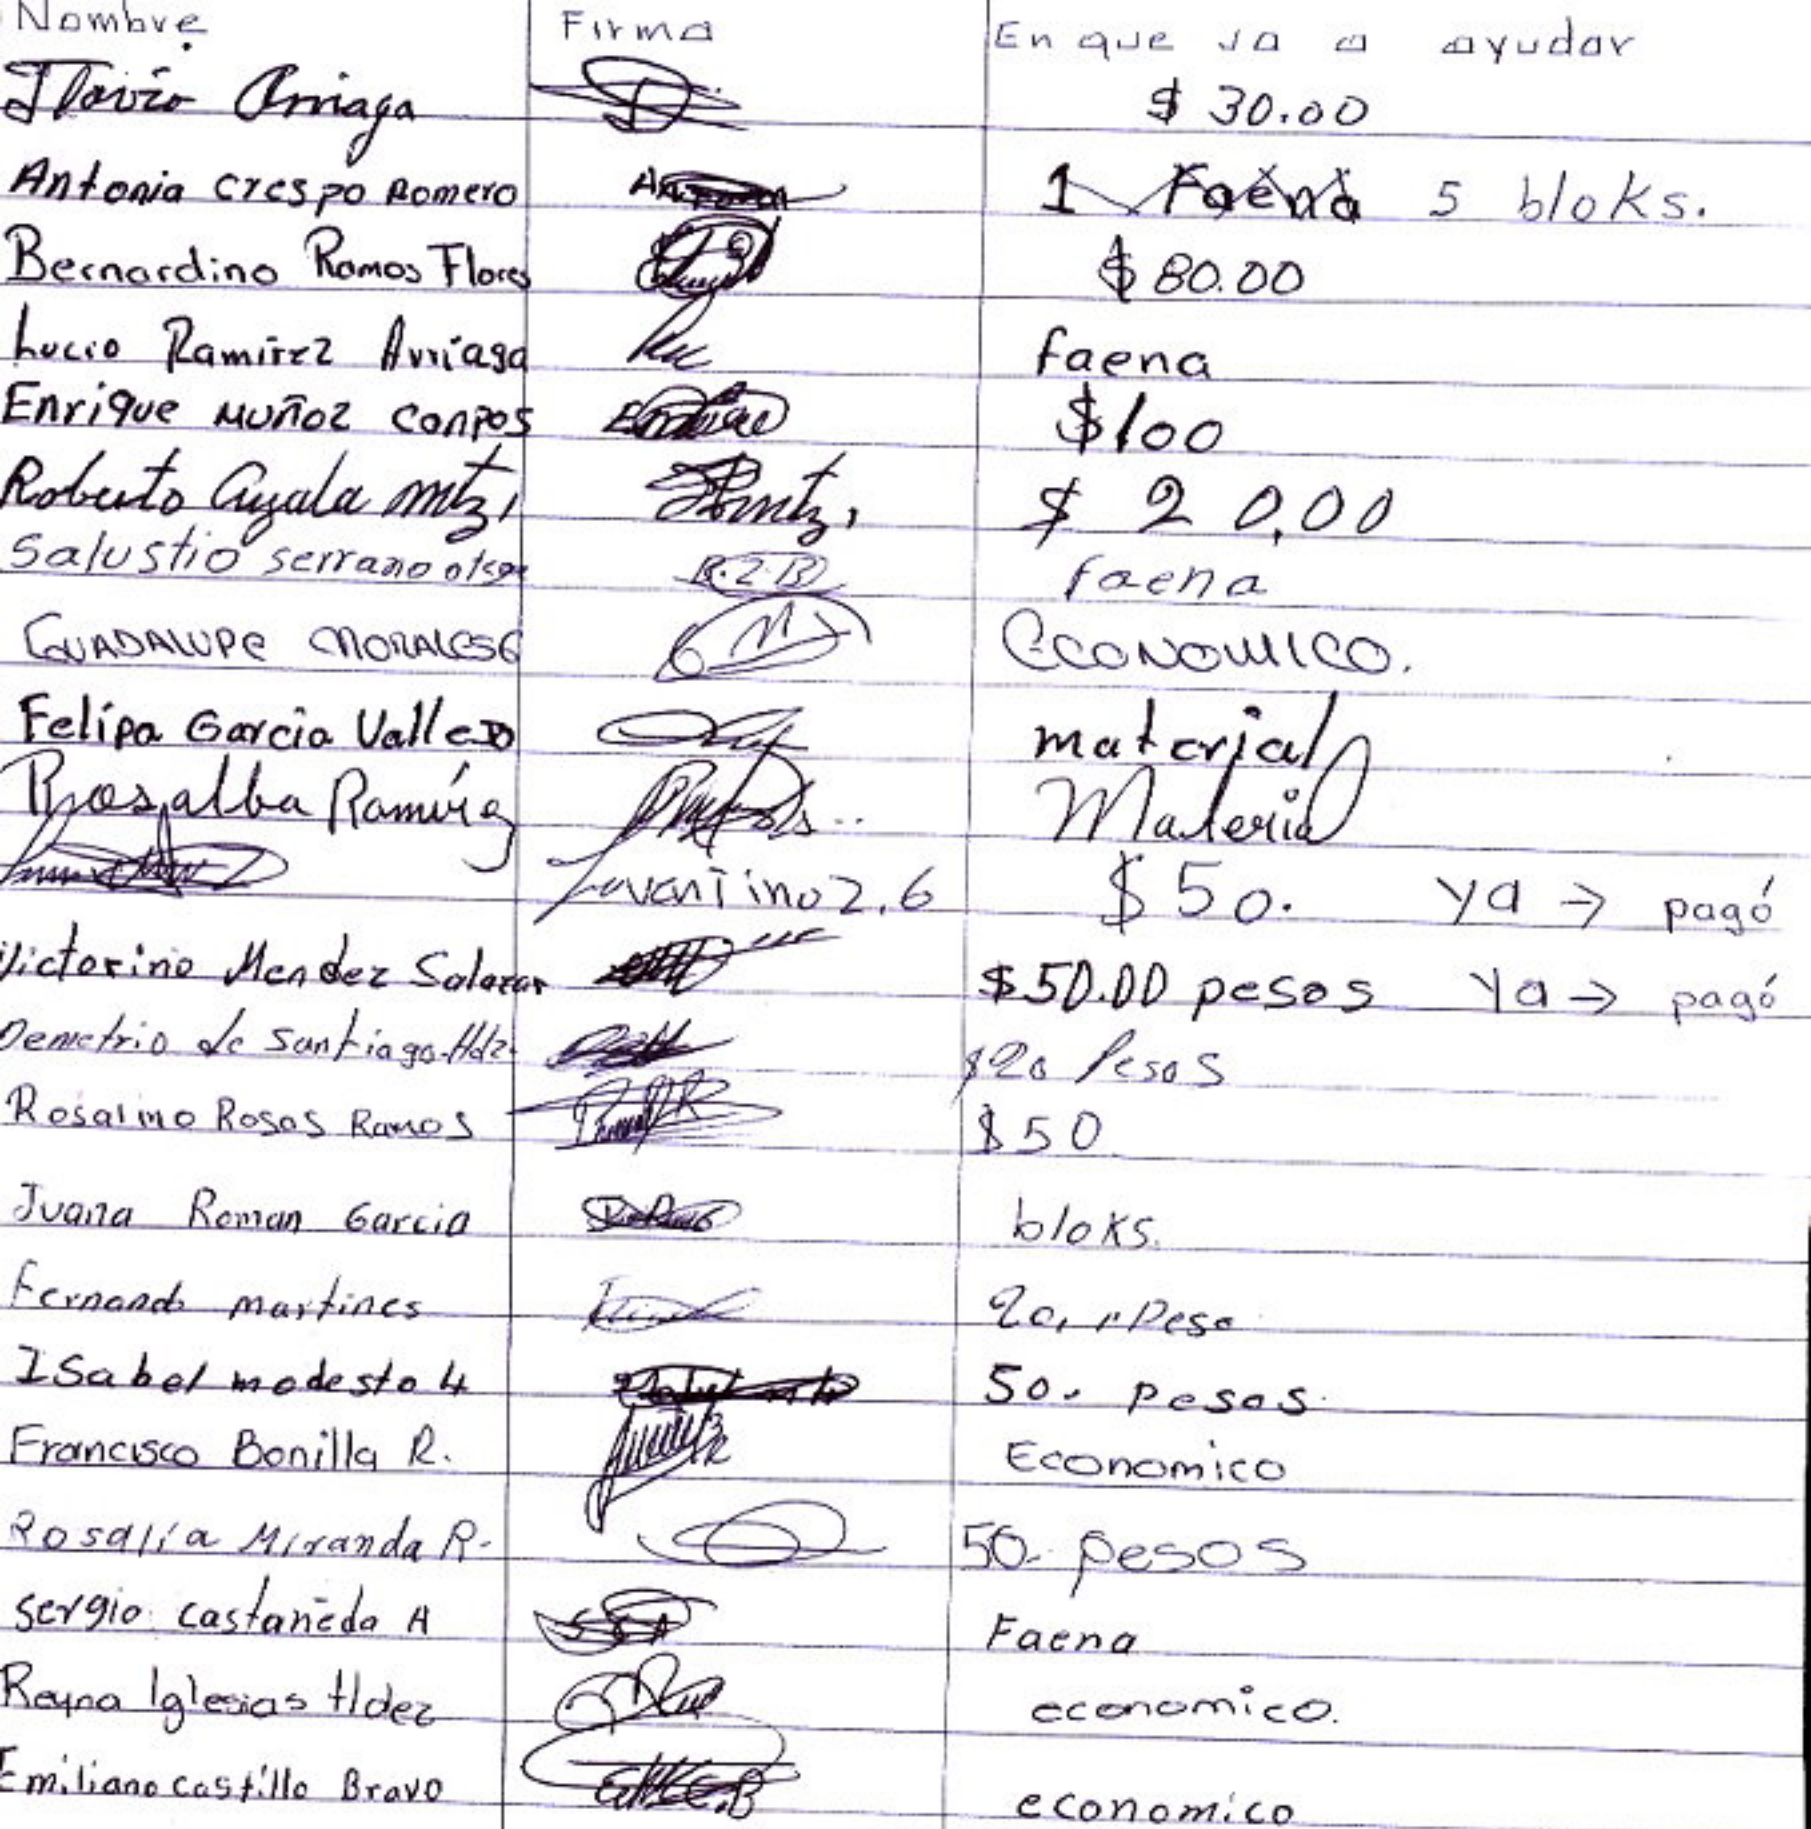 Nombre Firma En que va a ayudar
Flavio Arriaga $ 30.00
Antonia crespo Romero 1 Faena 5 bloks.
Bernardino Ramos Flores $ 80.00
Lucio Ramirez Arriaga faena
Enrique Muñoz Conpos $100
Roberto Ayala mtz, $ 20,00
Salustio serrano faena
GUADALUPe MORALES G ECONOMICO.
Felipa Garcia Vallejo material
Rosalba Ramírez Material
$ 50. ya → pagó
Victorino Mendez Salazar $50.00 pesos Ya → pagó
Demetrio de Santiago Hdz. $20 Pesos
Rosalino Rosas Ramos $50
Juana Roman Garcia bloks.
Fernando martines 20, Peso
Isabel modesto 4 50. pesos.
Francisco Bonilla R. Economico
Rosalía Miranda R. 50. pesos
sergio castañeda A Faena
Reyna Iglesias Hdez economico.
Emiliano Castillo Bravo economico